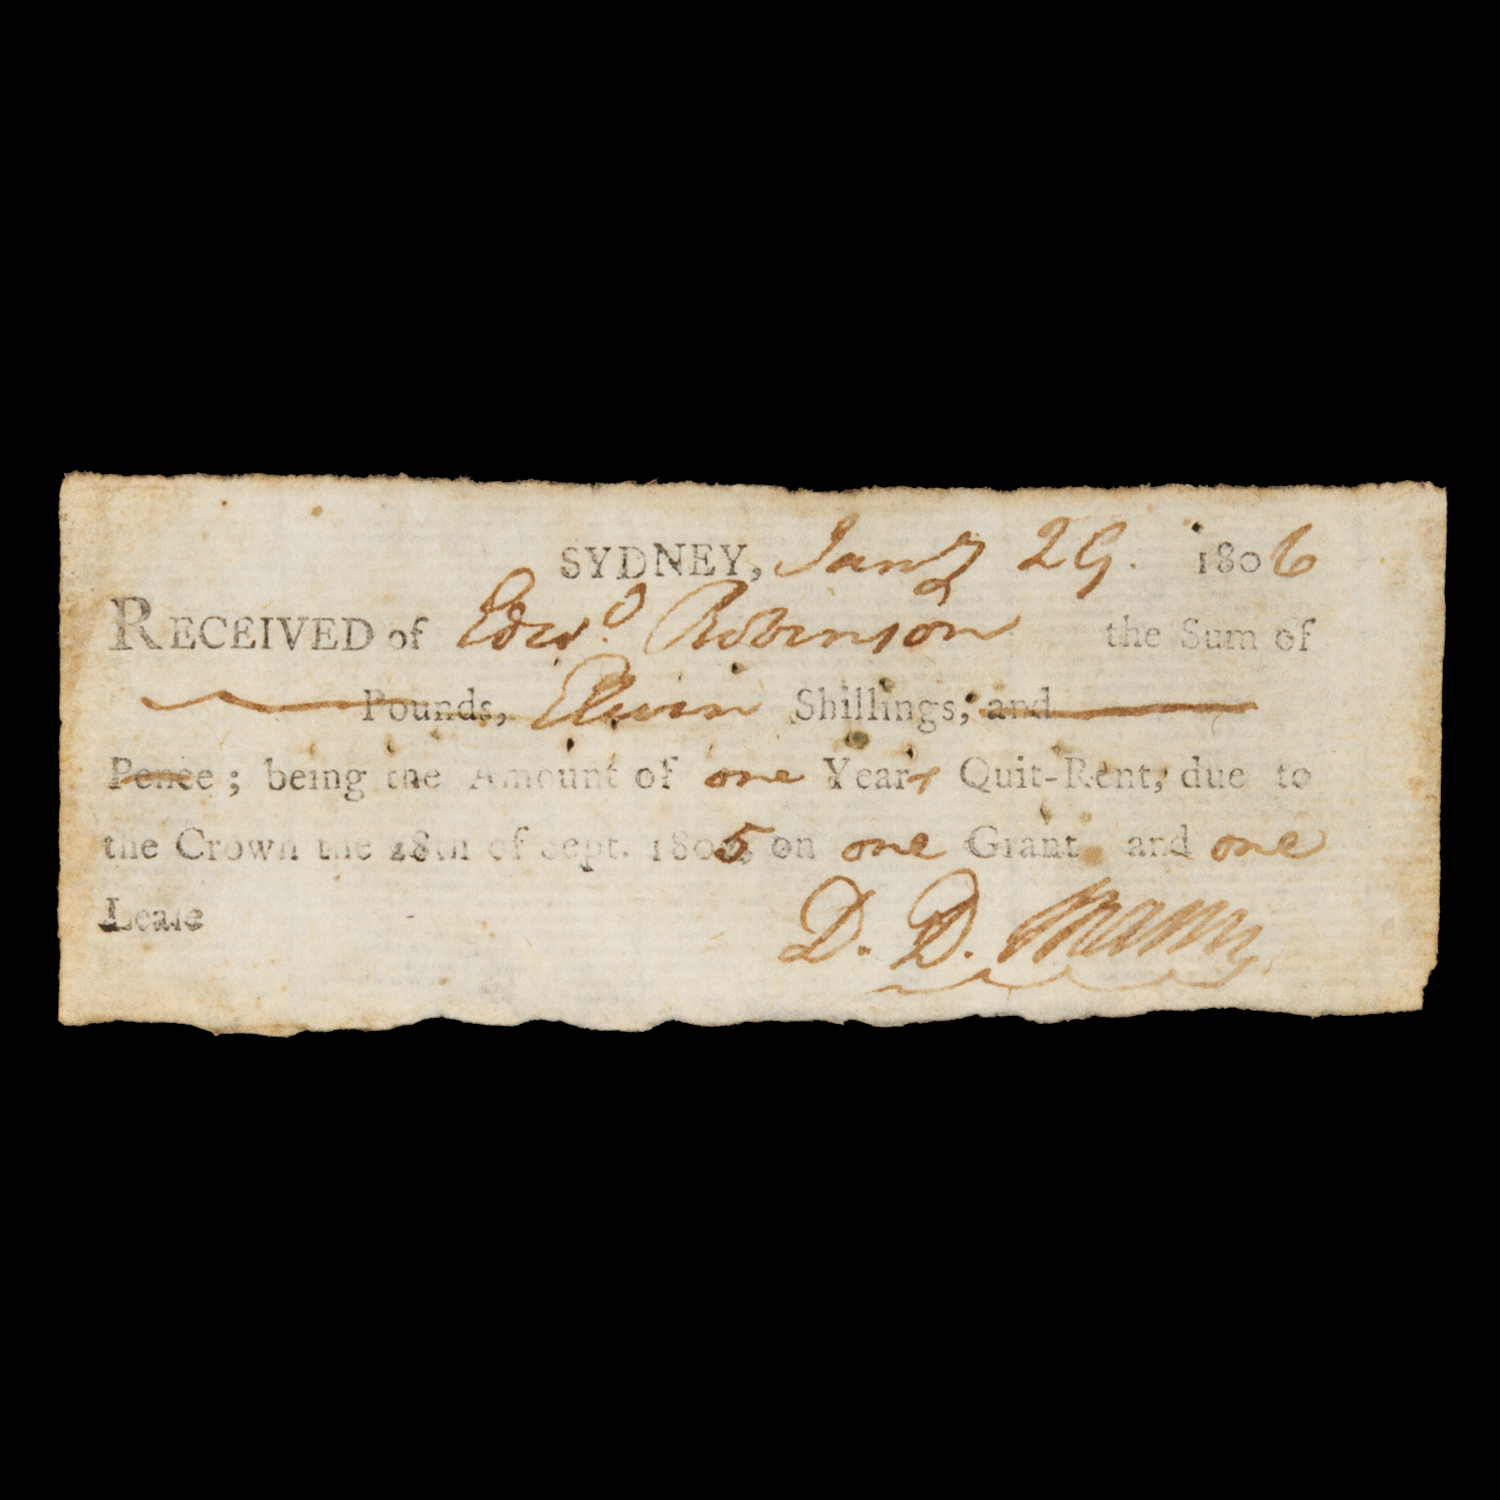 SYDNEY, Jany 29. 1806
RECEIVED of Edwd. Robinson the Sum of
Pounds, Eleven Shillings, and
Pence ; being the Amount of one Years Quit-Rent, due to
the Crown the 28th of Sept. 1805, on one Grant and one
Leaſe
D. D. Mann